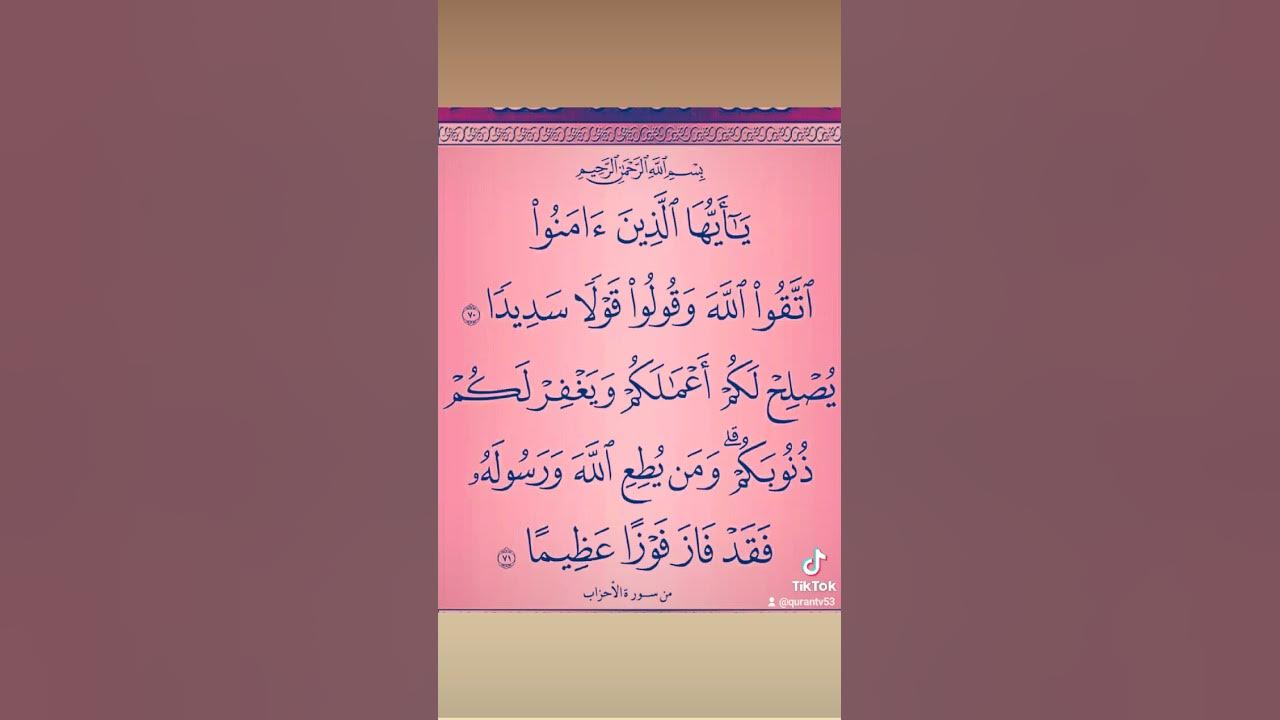 بِسْمِ ٱللَّهِ ٱلرَّحْمَٰنِ ٱلرَّحِيمِ
يَـٰٓأَيُّهَا ٱلَّذِينَ ءَامَنُوا۟
ٱتَّقُوا۟ ٱللَّهَ وَقُولُوا۟ قَوْلًا سَدِيدًا ٧٠
يُصْلِحْ لَكُمْ أَعْمَـٰلَكُمْ وَيَغْفِرْ لَكُمْ
ذُنُوبَكُمْ ۗ وَمَن يُطِعِ ٱللَّهَ وَرَسُولَهُۥ
فَقَدْ فَازَ فَوْزًا عَظِيمًا ٧١
من سورة الأحزاب
TikTok
@qurantv53